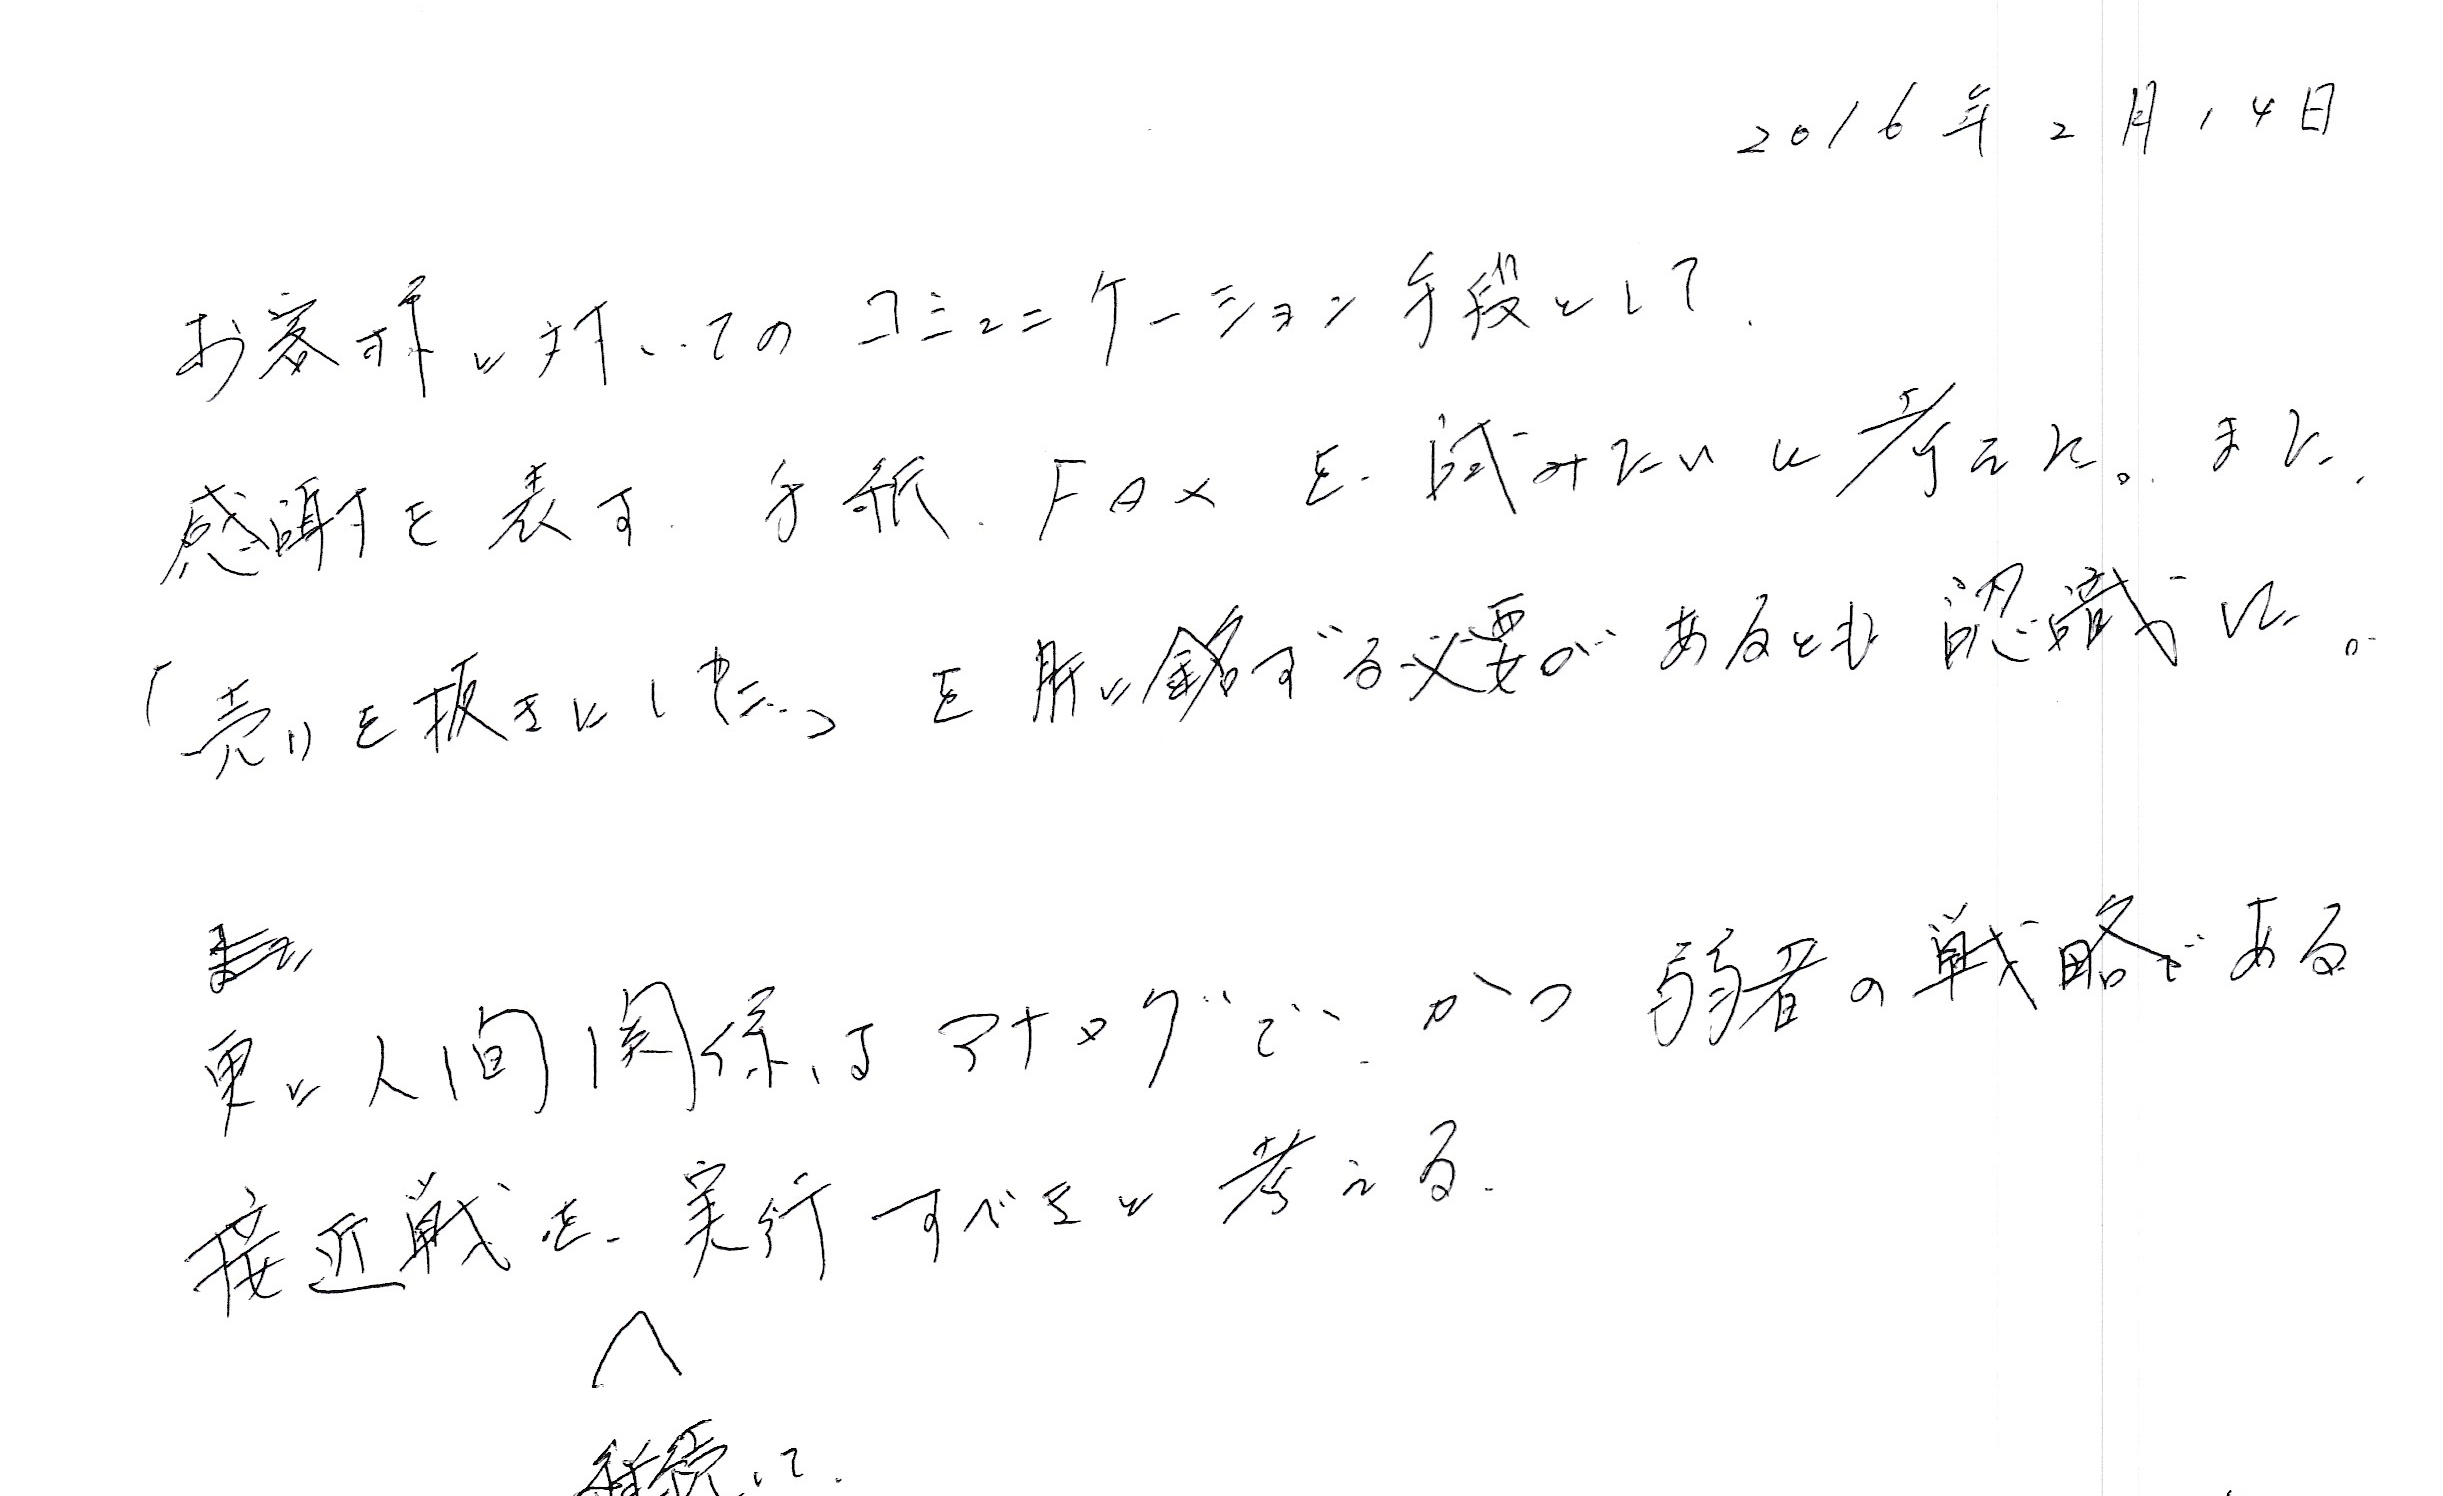 2016年2月14日
お客様に対しての コミュニケーション手段として、
感謝を表す、手紙、FAXを、試みたいと考えた。また、
「売りを抜きにした」を肝に銘ずる必要があるとも認識した。
また、
更に人間関係はアナログで、かつ弱者の戦略である
接近戦を、実行すべきと考える。
継続して、